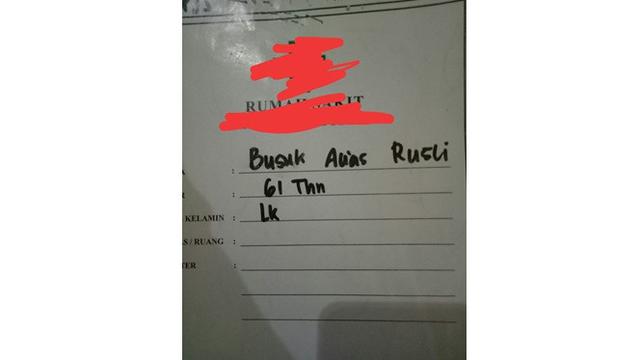 RUMAH SAKIT
: Busuk Alias Rusli
: 61 Thn
KELAMIN : Lk
S / RUANG :
TER :